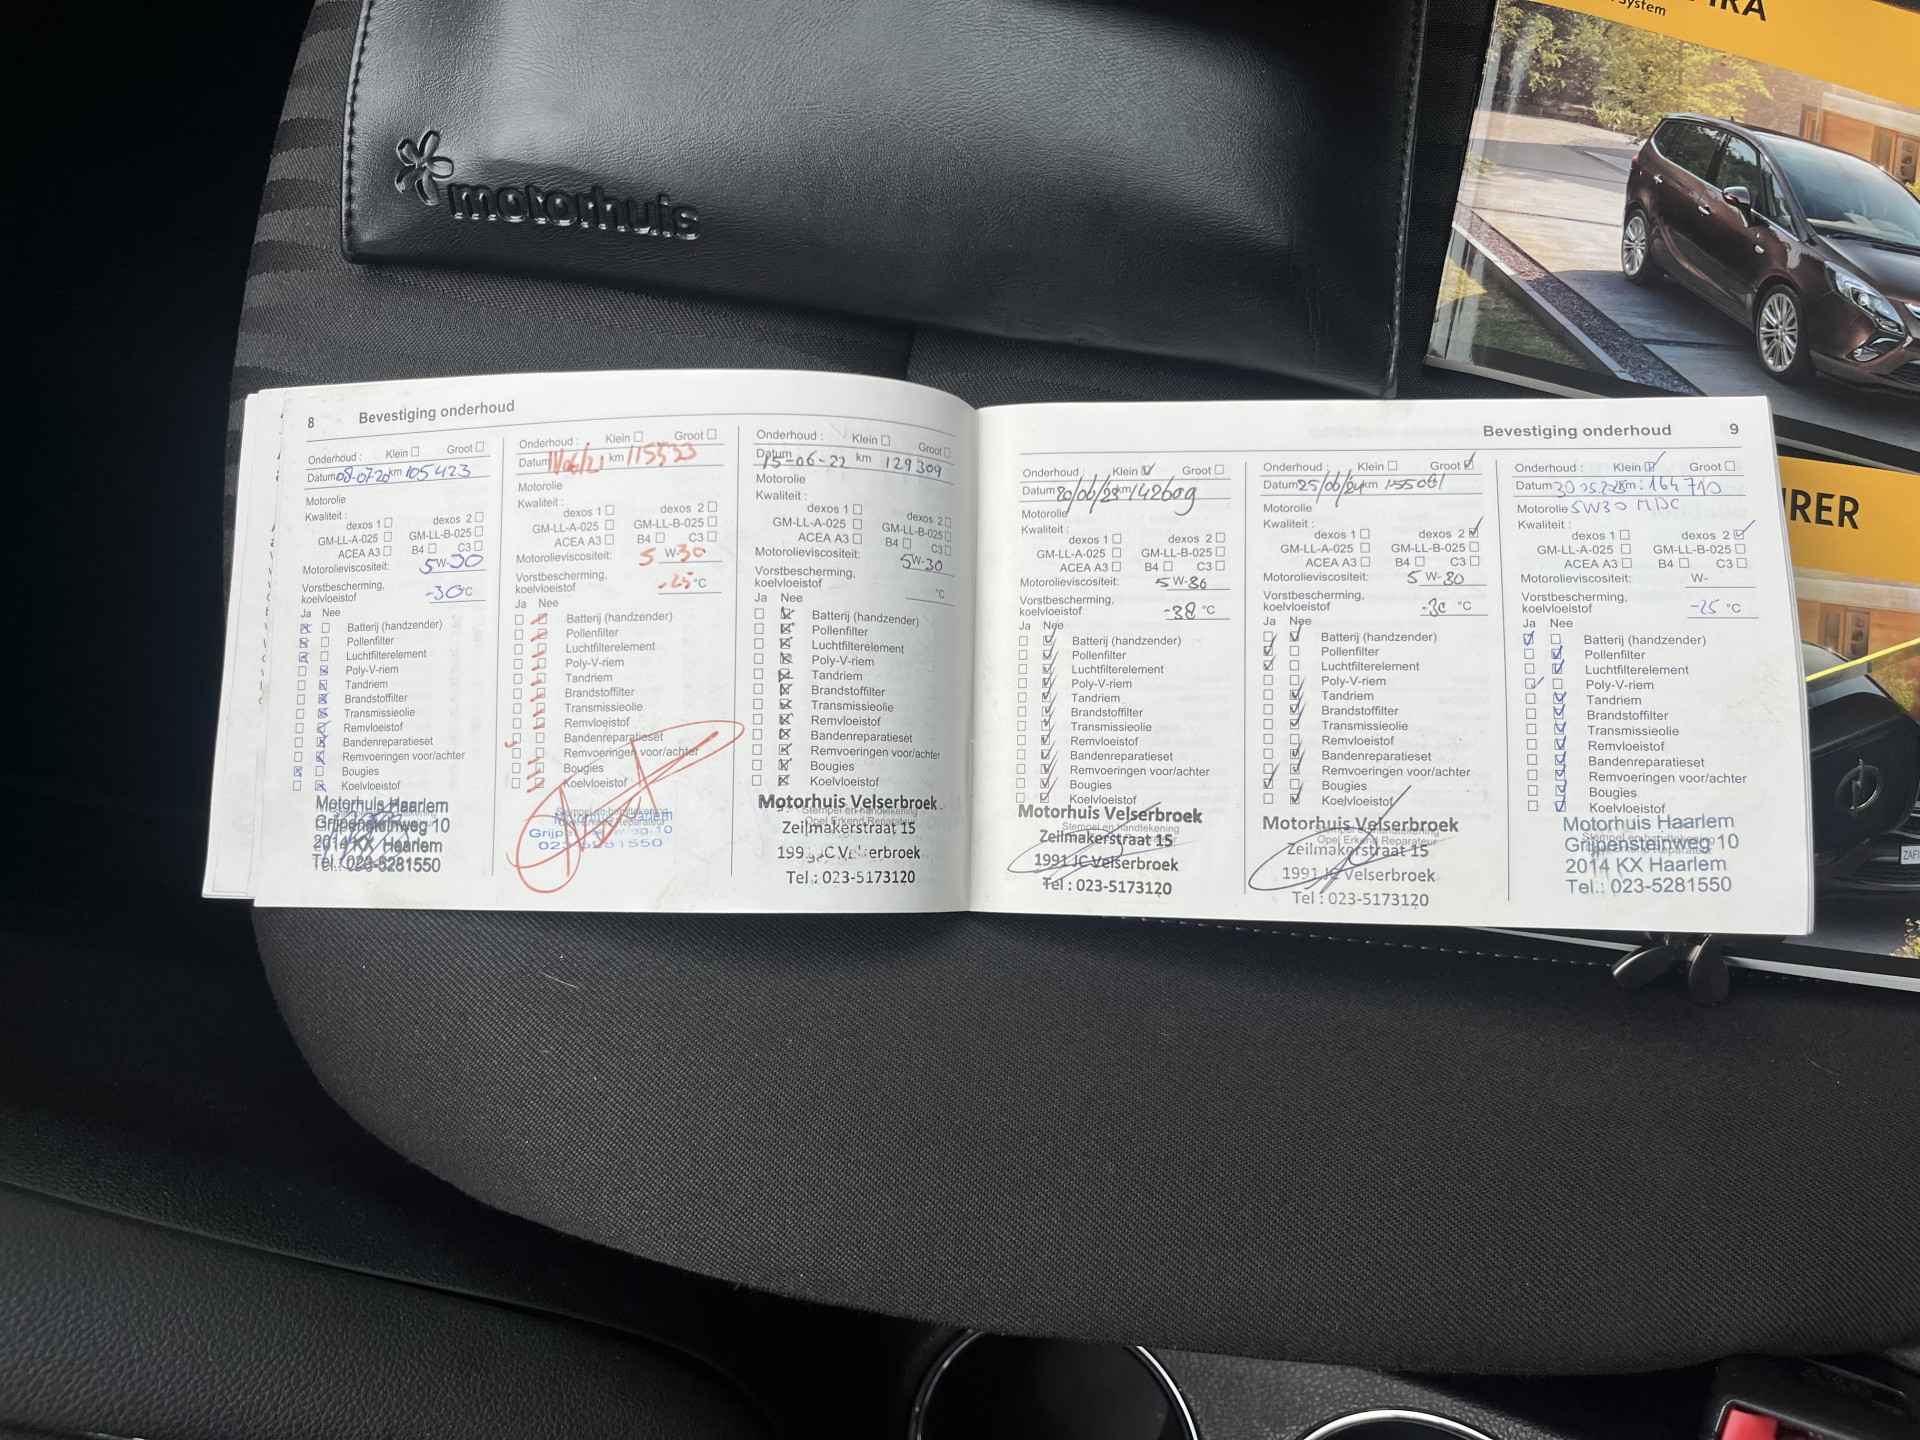 motorhuis
System
IRER
8 Bevestiging onderhoud
Onderhoud : Klein Groot
Datum 08-07-20 km 105423
Motorolie
Kwaliteit :
dexos 1 dexos 2
GM-LL-A-025 GM-LL-B-025
ACEA A3 B4 C3
Motorolieviscositeit: 5W-30
Vorstbescherming,
koelvloeistof -30°C
Ja Nee
Batterij (handzender)
Pollenfilter
Luchtfilterelement
Poly-V-riem
Tandriem
Brandstoffilter
Transmissieolie
Remvloeistof
Bandenreparatieset
Remvoeringen voor/achter
Bougies
Koelvloeistof
Motorhuis Haarlem
Grijpensteinweg 10
2014 KX Haarlem
Tel.: 023-5281550
Onderhoud : Klein Groot
Datum km 115533
Motorolie
Kwaliteit :
dexos 1 dexos 2
GM-LL-A-025 GM-LL-B-025
ACEA A3 B4 C3
Motorolieviscositeit: 5 W-30
Vorstbescherming,
koelvloeistof -25°C
Ja Nee
Batterij (handzender)
Pollenfilter
Luchtfilterelement
Poly-V-riem
Tandriem
Brandstoffilter
Transmissieolie
Remvloeistof
Bandenreparatieset
Remvoeringen voor/achter
Bougies
Koelvloeistof
Onderhoud : Klein Groot
Datum 15-06-22 km 129309
Motorolie
Kwaliteit :
dexos 1 dexos 2
GM-LL-A-025 GM-LL-B-025
ACEA A3 B4 C3
Motorolieviscositeit: 5W-30
Vorstbescherming,
koelvloeistof °C
Ja Nee
Batterij (handzender)
Pollenfilter
Luchtfilterelement
Poly-V-riem
Tandriem
Brandstoffilter
Transmissieolie
Remvloeistof
Bandenreparatieset
Remvoeringen voor/achter
Bougies
Koelvloeistof
Motorhuis Velserbroek
Zeilmakerstraat 15
Velserbroek
Tel : 023-5173120
Bevestiging onderhoud 9
Onderhoud : Klein Groot
Datum 20/06/23 km 142609
Motorolie
Kwaliteit :
dexos 1 dexos 2
GM-LL-A-025 GM-LL-B-025
ACEA A3 B4 C3
Motorolieviscositeit: 5 W-30
Vorstbescherming,
koelvloeistof -38 °C
Ja Nee
Batterij (handzender)
Pollenfilter
Luchtfilterelement
Poly-V-riem
Tandriem
Brandstoffilter
Transmissieolie
Remvloeistof
Bandenreparatieset
Remvoeringen voor/achter
Bougies
Koelvloeistof
Motorhuis Velserbroek
Stempel en handtekening
Zeilmakerstraat 15
1991 JC Velserbroek
Tel : 023-5173120
Onderhoud : Klein Groot
Datum 25/06/24 km 155061
Motorolie
Kwaliteit :
dexos 1 dexos 2
GM-LL-A-025 GM-LL-B-025
ACEA A3 B4 C3
Motorolieviscositeit: 5 W-30
Vorstbescherming,
koelvloeistof -30 °C
Ja Nee
Batterij (handzender)
Pollenfilter
Luchtfilterelement
Poly-V-riem
Tandriem
Brandstoffilter
Transmissieolie
Remvloeistof
Bandenreparatieset
Remvoeringen voor/achter
Bougies
Koelvloeistof
Motorhuis Velserbroek
Zeilmakerstraat 15
1991 JC Velserbroek
Tel : 023-5173120
Onderhoud : Klein Groot
Datum km: 164710
Motorolie 5W30 MDC
Kwaliteit :
dexos 1 dexos 2
GM-LL-A-025 GM-LL-B-025
ACEA A3 B4 C3
Motorolieviscositeit: W-
Vorstbescherming,
koelvloeistof -25 °C
Ja Nee
Batterij (handzender)
Pollenfilter
Luchtfilterelement
Poly-V-riem
Tandriem
Brandstoffilter
Transmissieolie
Remvloeistof
Bandenreparatieset
Remvoeringen voor/achter
Bougies
Koelvloeistof
Motorhuis Haarlem
Grijpensteinweg 10
2014 KX Haarlem
Tel.: 023-5281550